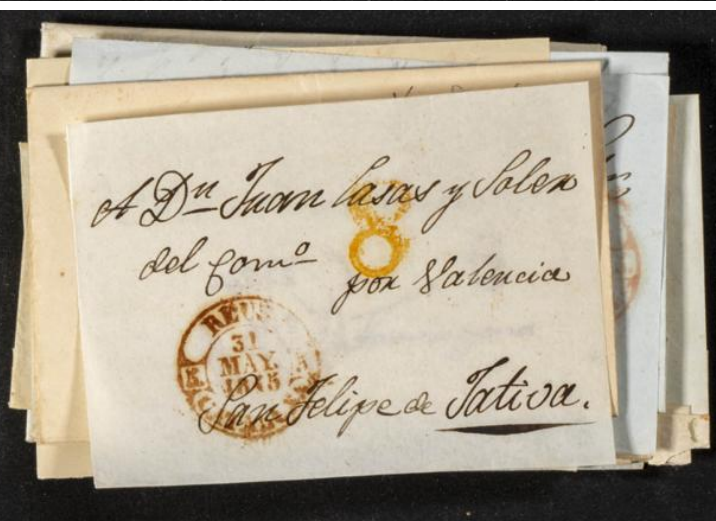 A Dn Juan Casas y Soler
del Como
por Valencia
REUS
31
MAY.
San Felipe de Jativa.